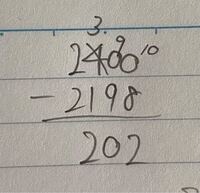 3. 9 10
2400
- 2198
202